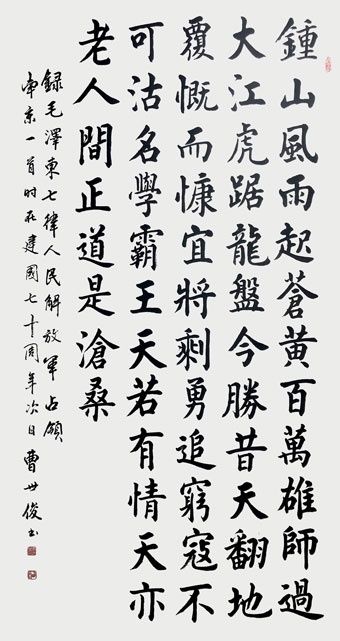 鍾山風雨起蒼黃百萬雄師過
大江虎踞龍盤今勝昔天翻地
覆慨而慷宜將剩勇追窮寇不
可沽名學霸王天若有情天亦
老人間正道是滄桑
録毛澤東七律人民解放軍占領
南京一首时在建國七十周年次日曹世俊书